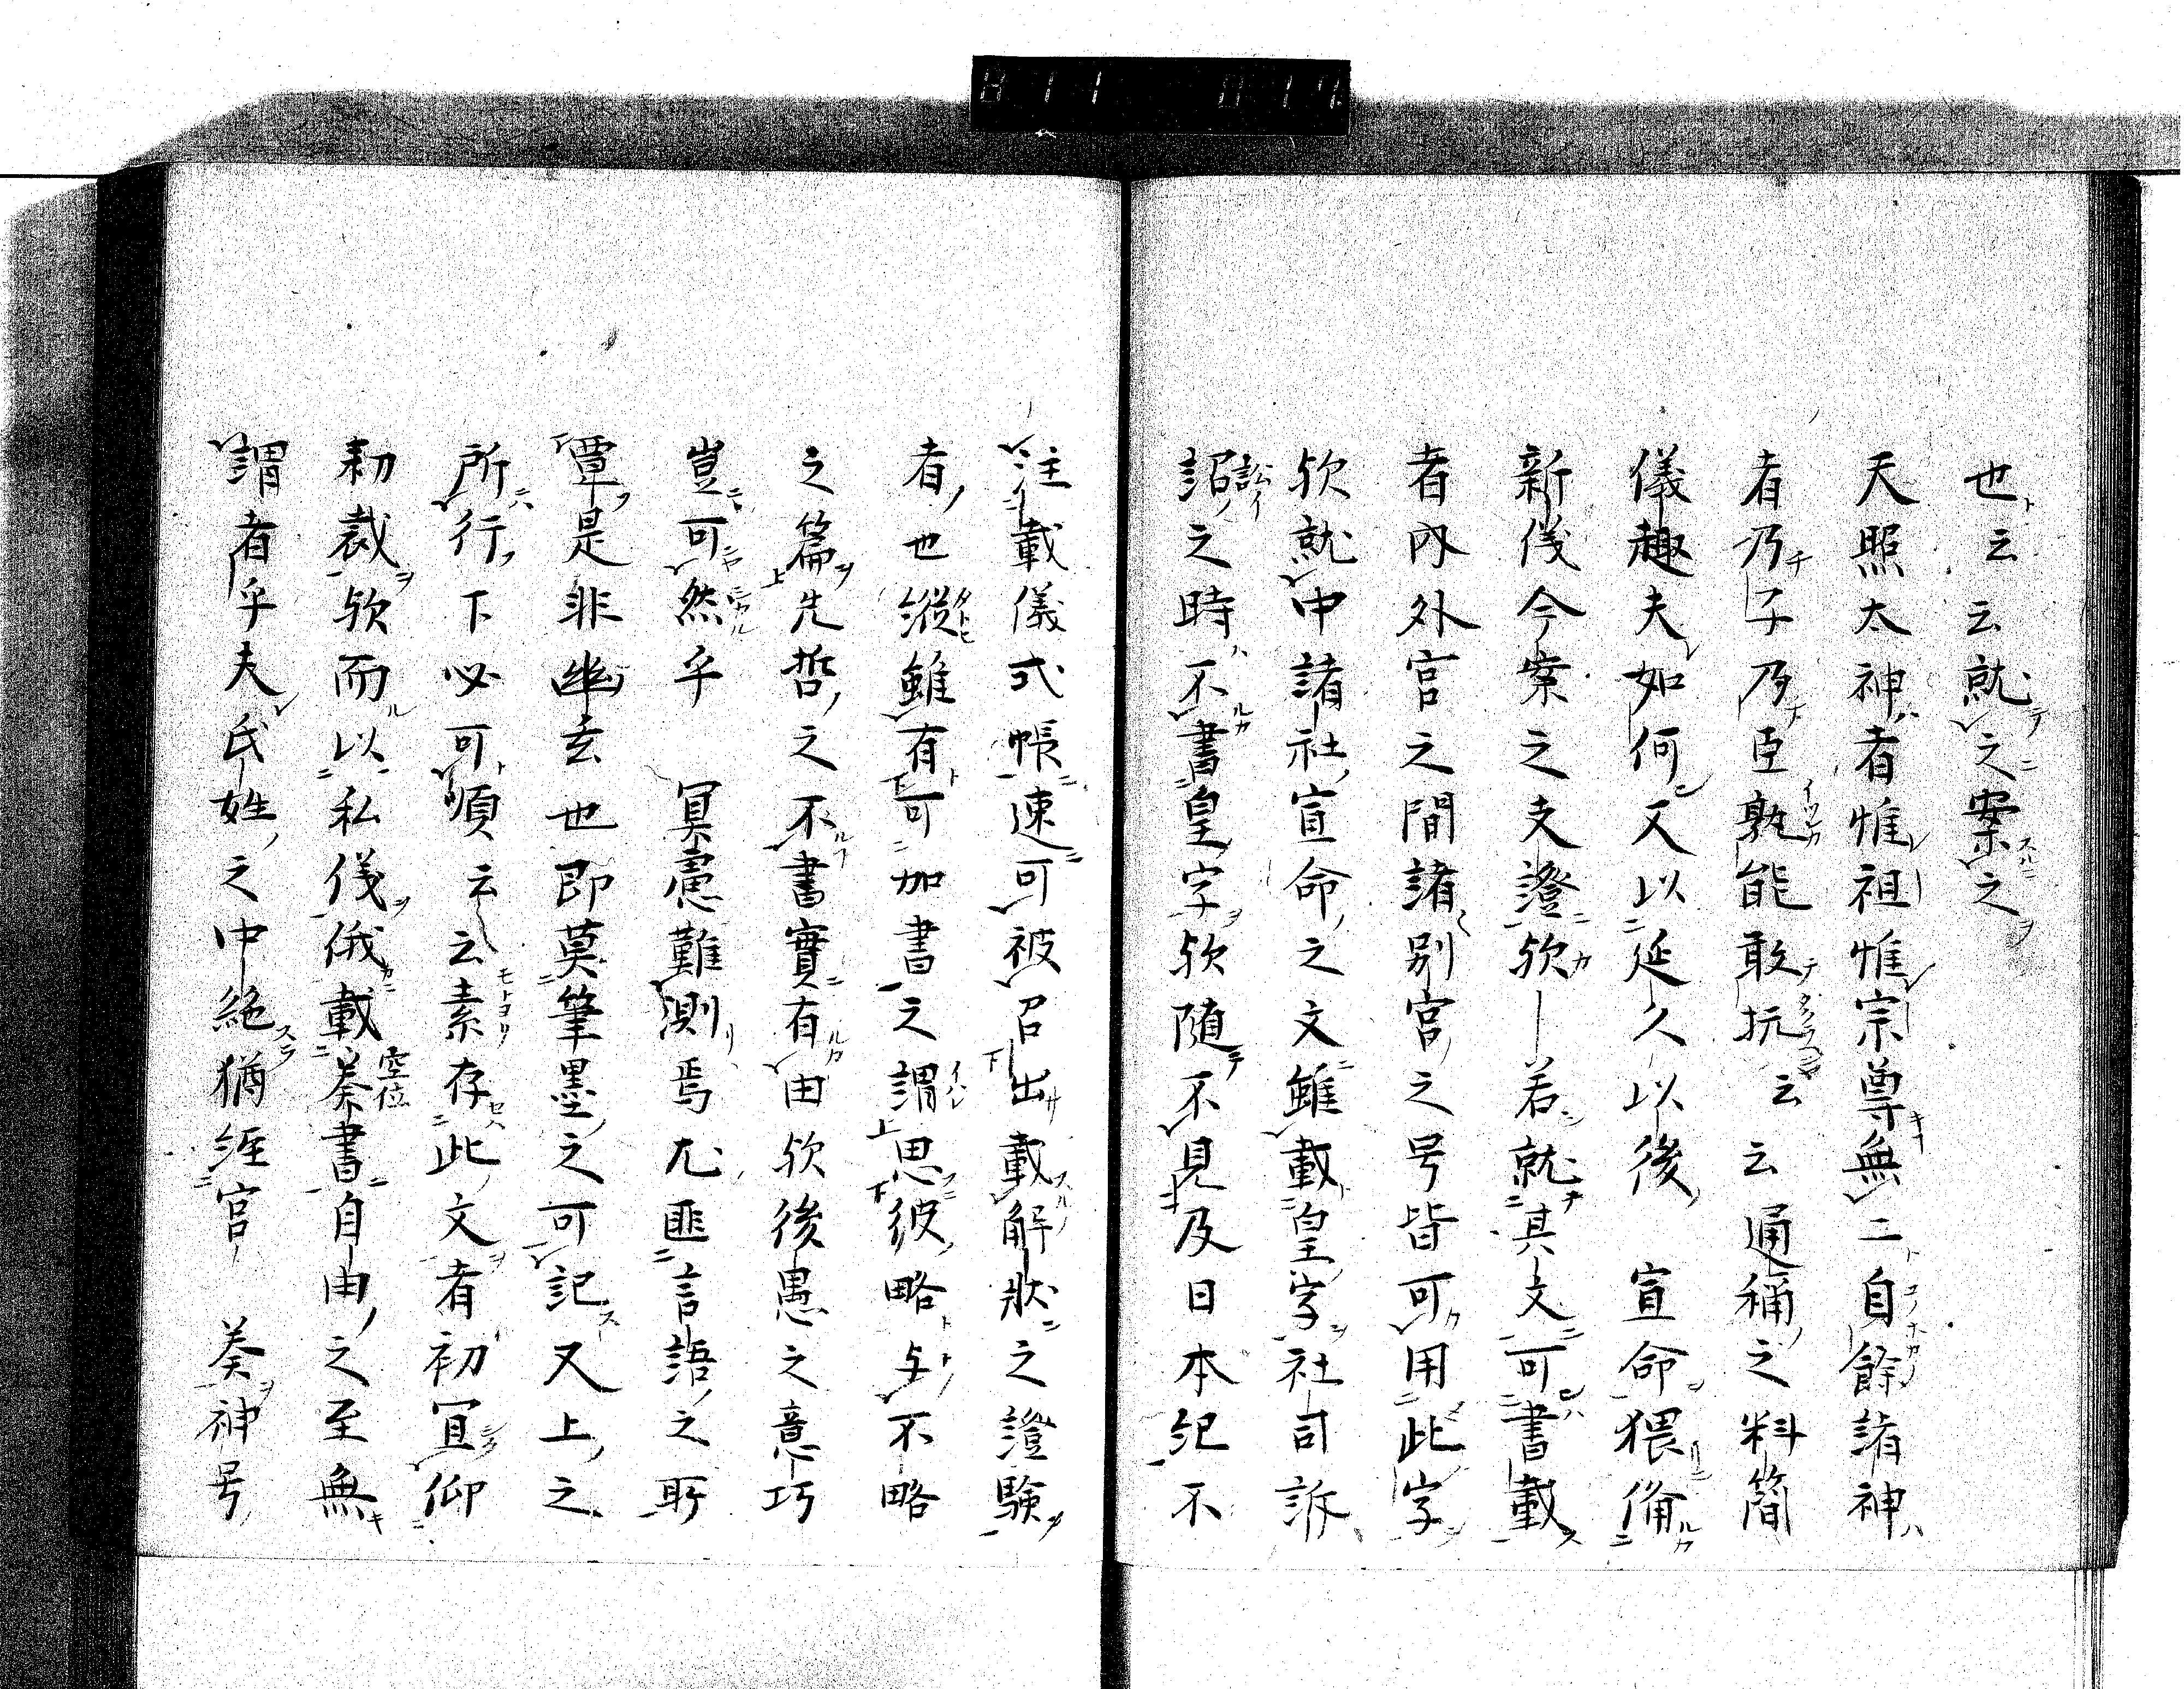 也云云就之案之
天照太神者惟祖惟宗尊無二自餘諸神
者乃子乃臣孰能敢抗云云通稱之料簡
儀趣夫如何又以延久以後 宣命猥備
新儀今案之支證欤若就其文可書載
者内外宮之間諸別宮之号皆可用此字
欤就中諸社宣命之文雖載皇字社司訴
詔之時不書皇字欤随不見及日本紀不
注載儀式帳速可被召出載解狀之證驗
者也縱雖有可加書之謂思彼略与不略
之篇先哲之不書實有由欤後愚之意巧
豈可然乎 冥慮難測焉尤匪言語之所
覃是非幽玄也即莫筆墨之可記又上之
所行下必可順云云素存此文者初宜仰
勅裁欤而以私儀俄載奏書自由之至無
謂者乎夫氏姓之中絶猶經官 奏神号